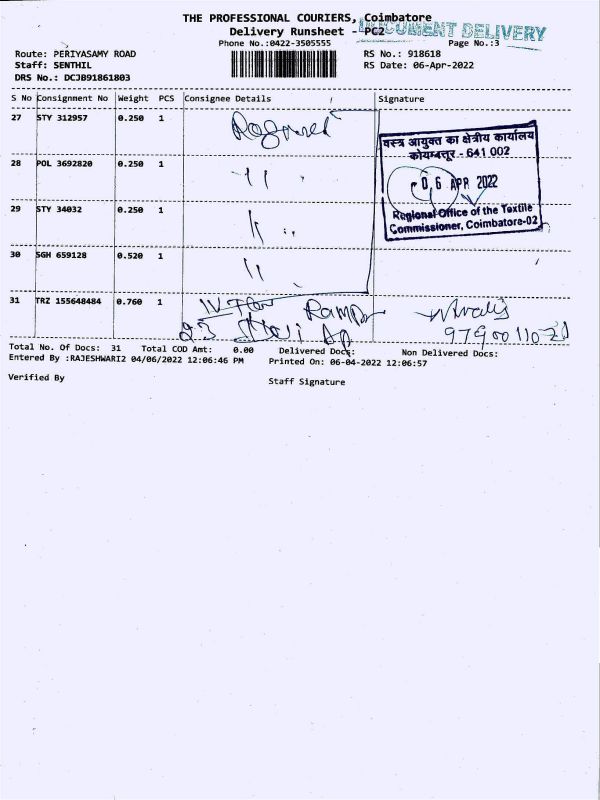 THE PROFESSIONAL COURIERS, Coimbatore
Delivery Runsheet - PC2
DOCUMENT DELIVERY
Phone No.:0422-3505555
Page No.:3
Route: PERIYASAMY ROAD
RS No.: 918618
Staff: SENTHIL
RS Date: 06-Apr-2022
DRS No.: DCJB91861803
S No Consignment No Weight PCS Consignee Details Signature
27 STY 312957 0.250 1
28 POL 3692820 0.250 1
29 STY 34032 0.250 1
30 SGH 659128 0.520 1
31 TRZ 155648484 0.760 1
वस्त्र आयुक्त का क्षेत्रीय कार्यालय
कोयम्बत्तूर - 641 002
0 6 APR 2022
Regional Office of the Textile
Commissioner, Coimbatore-02
Total No. Of Docs: 31 Total COD Amt: 0.00 Delivered Docs: Non Delivered Docs:
Entered By :RAJESHWARI2 04/06/2022 12:06:46 PM Printed On: 06-04-2022 12:06:57
Verified By
Staff Signature